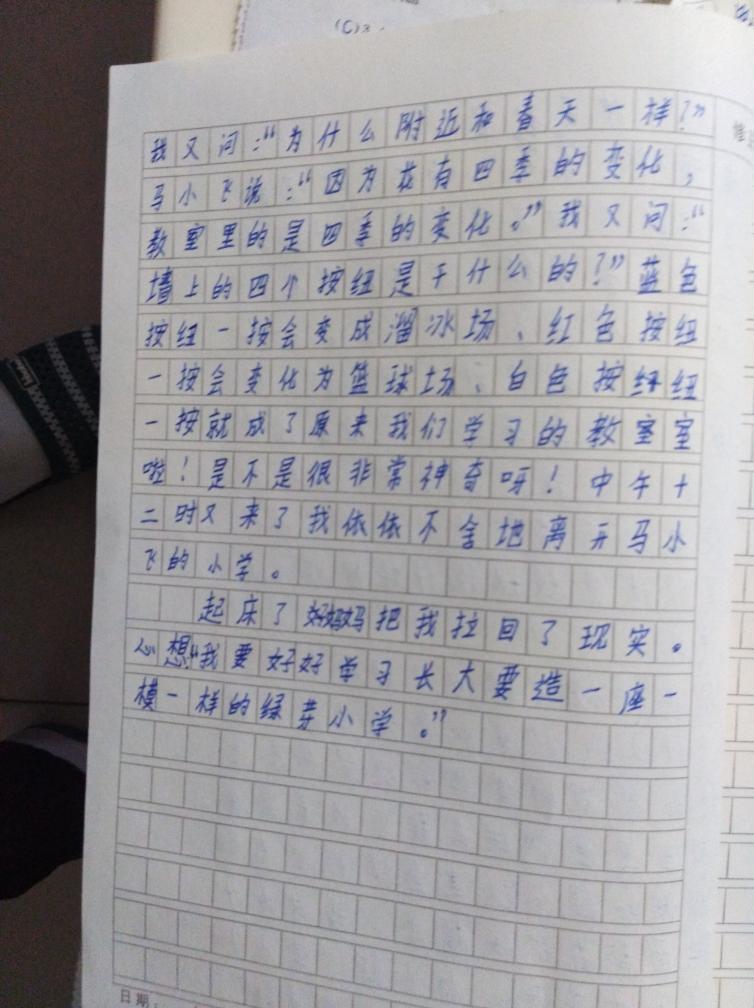 (C)
我又问:“为什么附近和春天一样?”
马小飞说:“因为花有四季的变化,
教室里的是四季的变化。”我又问:“
墙上的四个按纽是干什么的?”蓝色
按纽一按会变成溜冰场、红色按纽
一按会变化为篮球场、白色按纽纽
一按就成了原来我们学习的教室室
啦!是不是很非常神奇呀!中午十
二时又来了我依依不舍地离开马小
飞的小学。
起床了好妈妈把我拉回了现实。
心想“我要好好学习长大要造一座一
模一样的绿芽小学。”
日期: